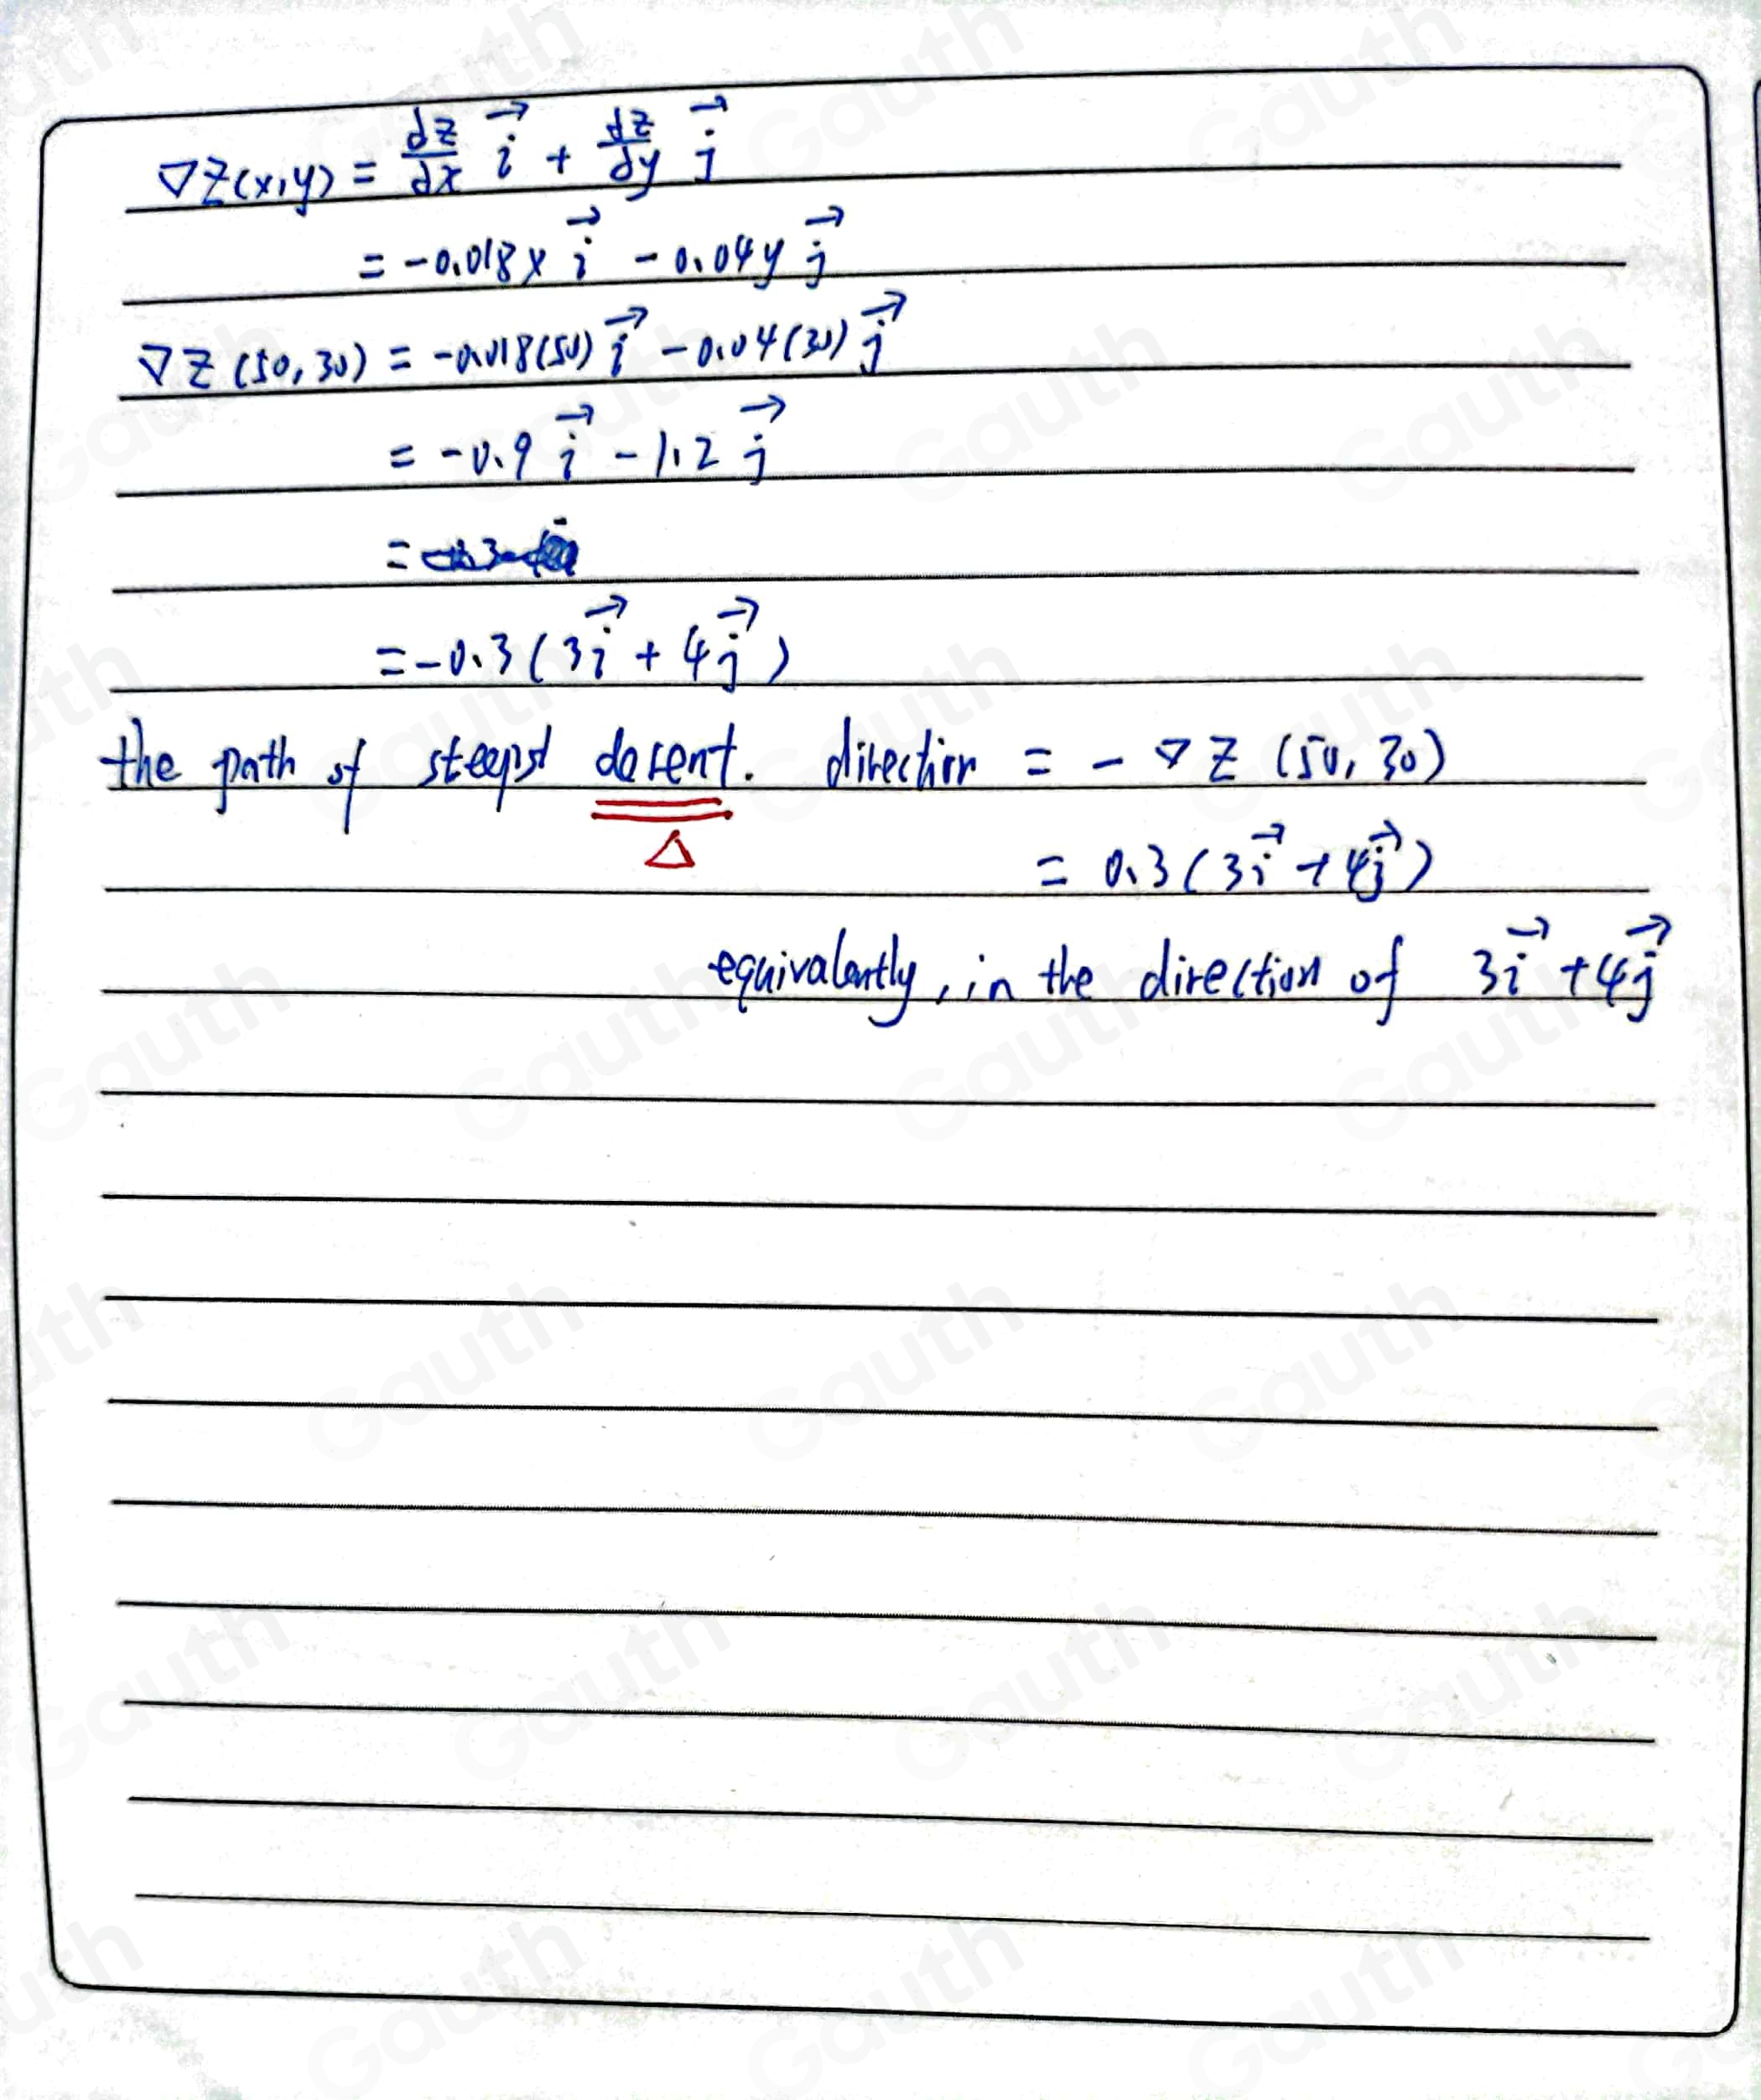 ∇z(x,y) = dz/dx i⃗ + dz/dy j⃗
= -0.018x i⃗ - 0.04y j⃗
∇z (50, 30) = -0.018(50) i⃗ - 0.04(30) j⃗
= -0.9 i⃗ - 1.2 j⃗
=
= -0.3 (3i⃗ + 4j⃗)
the path of steepst desent. direction = - ∇z (50, 30)
= 0.3 (3i⃗ + 4j⃗)
equivalently, in the direction of 3i⃗ + 4j⃗